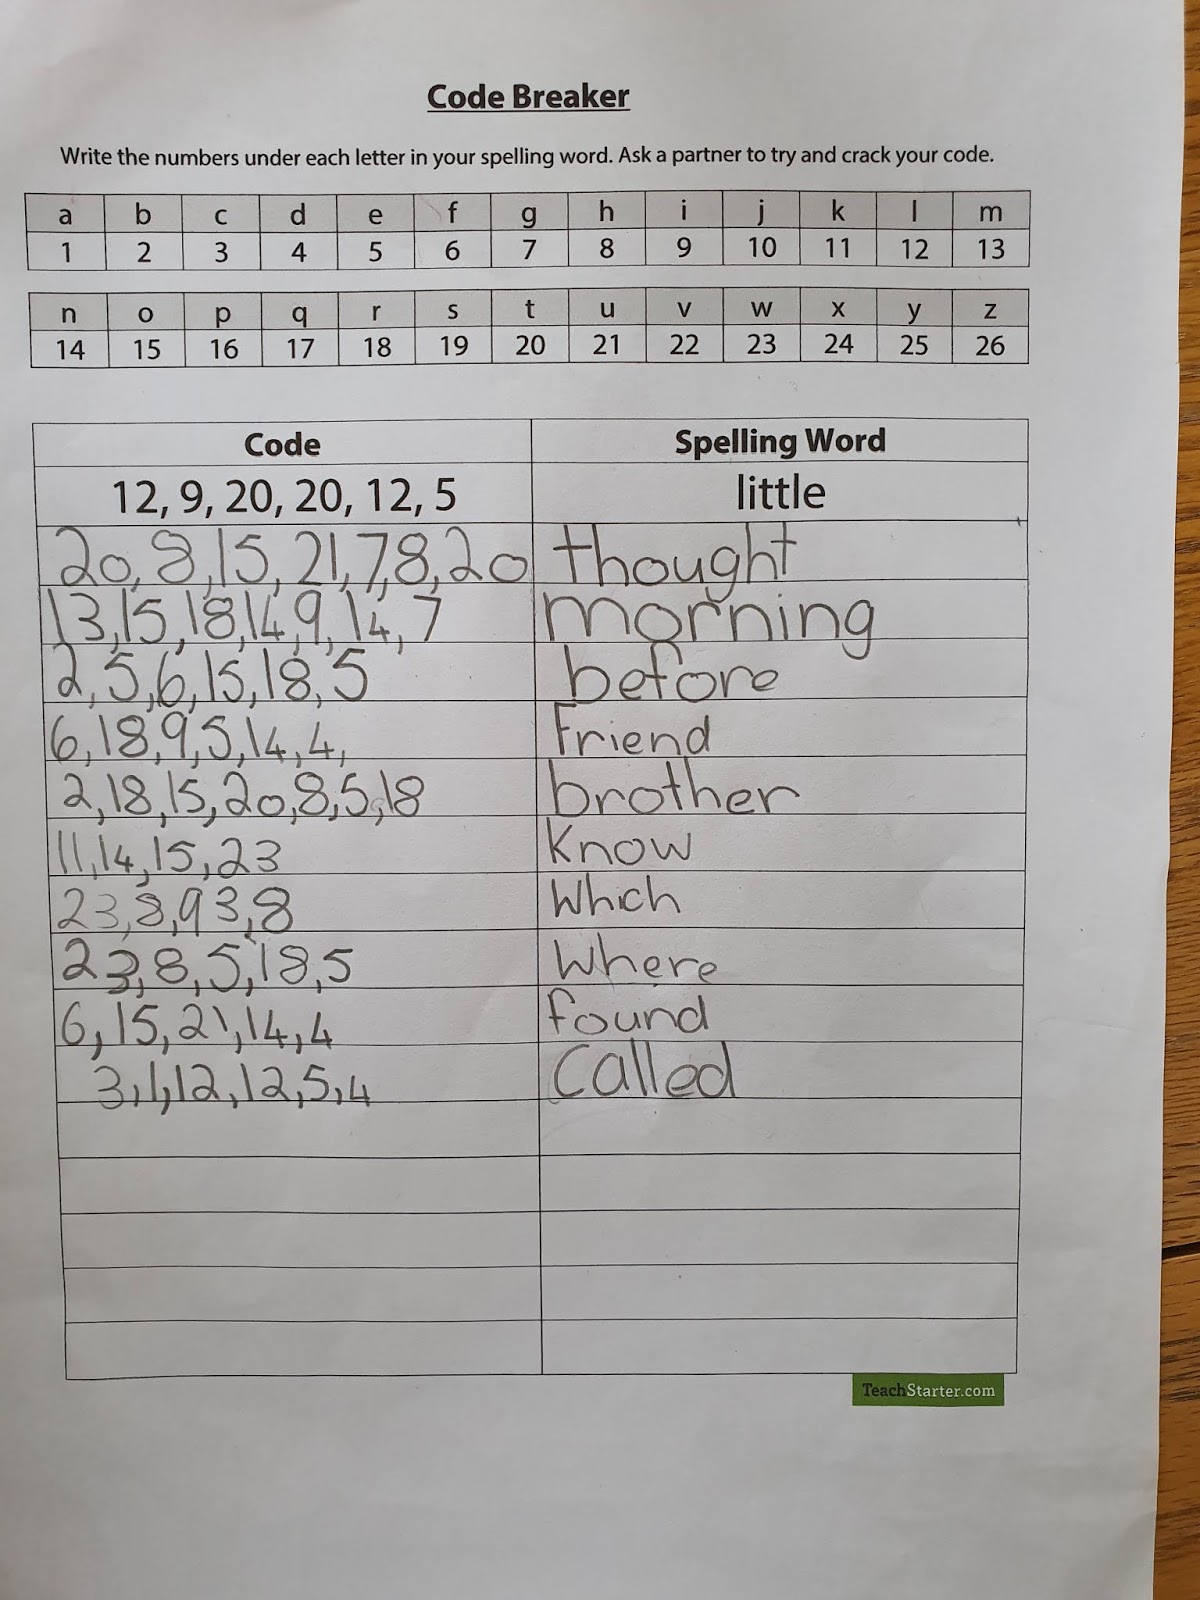 Code Breaker
Write the numbers under each letter in your spelling word. Ask a partner to try and crack your code.
a b c d e f g h i j k l m
1 2 3 4 5 6 7 8 9 10 11 12 13
n o p q r s t u v w x y z
14 15 16 17 18 19 20 21 22 23 24 25 26
Code Spelling Word
12, 9, 20, 20, 12, 5 little
20, 8, 15, 21, 7, 8, 20 thought
13, 15, 18, 14, 9, 14, 7 morning
2, 5, 6, 15, 18, 5 before
6, 18, 9, 5, 14, 4, Friend
2, 18, 15, 20, 8, 5, 18 brother
11, 14, 15, 23 Know
23, 8, 9 3, 8 Which
23, 8, 5, 18, 5 Where
6, 15, 21, 14, 4 found
3, 1, 12, 12, 5, 4 Called
TeachStarter.com